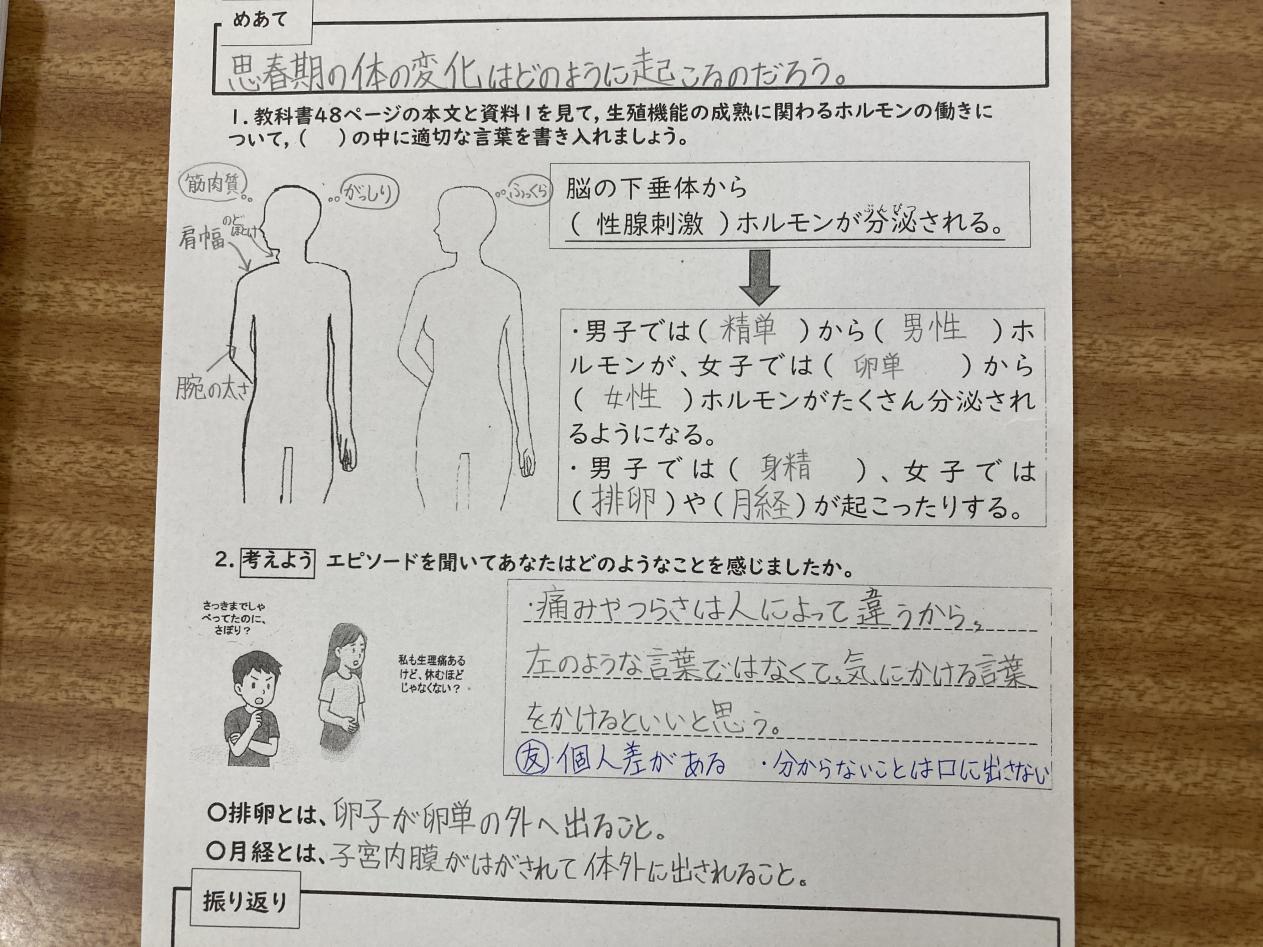 めあて
思春期の体の変化はどのように起こるのだろう。
1.教科書48ページの本文と資料1を見て,生殖機能の成熟に関わるホルモンの働きに
ついて,(　)の中に適切な言葉を書き入れましょう。
筋肉質
がっしり
のどぼとけ
肩幅
腕の太さ
ふっくら
脳の下垂体から
(性腺刺激)ホルモンが分泌される。
ぶんぴつ
・男子では(精単)から(男性)ホ
ルモンが、女子では(卵単)から
(女性)ホルモンがたくさん分泌され
るようになる。
・男子では(身精)、女子では
(排卵)や(月経)が起こったりする。
2.考えよう エピソードを聞いてあなたはどのようなことを感じましたか。
さっきまでしゃ
べってたのに、
さぼり？
私も生理痛ある
けど、休むほど
じゃなくない？
・痛みやつらさは人によって違うから、
左のような言葉ではなくて、気にかける言葉
をかけるといいと思う。
友・個人差がある ・分からないことは口に出さない
○排卵とは、卵子が卵単の外へ出ること。
○月経とは、子宮内膜がはがされて体外に出されること。
振り返り